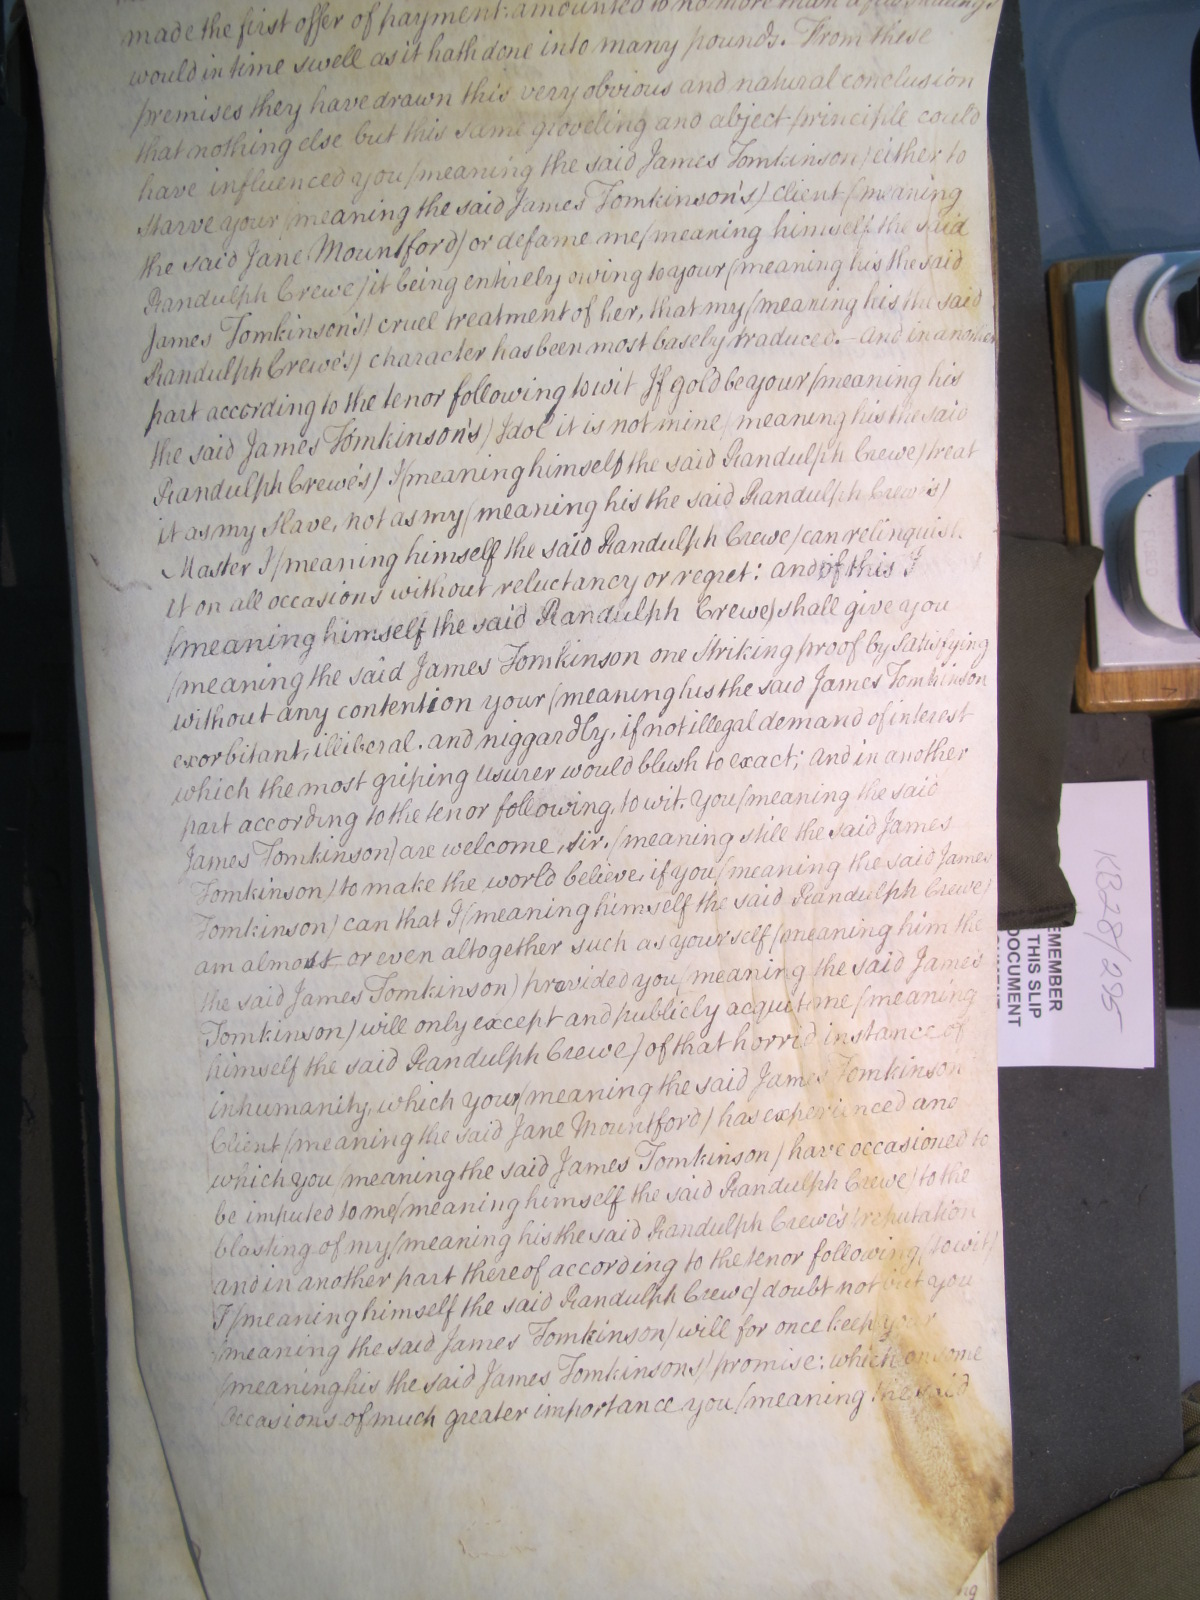 made the first offer of payment: amounted to no more than a few shillings
would in time swell as it hath done into many pounds. From these
premises they have drawn this very obvious and natural conclusion
that nothing else but this same groveling and abject principle could
have influenced you (meaning the said James Tomkinson) either to
starve your (meaning the said James Tomkinson's) Client (meaning
the said Jane Mountford) or defame me (meaning himself the said
Randulph Crewe) it being entirely owing to your (meaning his the said
James Tomkinson's) cruel treatment of her, that my (meaning his the said
Randulph Crewe's) character has been most basely traduced. - and in another
part according to the tenor following to wit If gold be your (meaning his
the said James Tomkinson's) Idol it is not mine (meaning his the said
Randulph Crewe's) I (meaning himself the said Randulph Crewe) treat
it as my Slave, not as my (meaning his the said Randulph Crewe's)
Master I (meaning himself the said Randulph Crewe) can relinquish
it on all occasions without reluctancy or regret: and of this I
(meaning himself the said Randulph Crewe) shall give you
(meaning the said James Tomkinson one striking proof by satisfying
without any contention your (meaning his the said James Tomkinson
exorbitant, illiberal, and niggardly, if not illegal demand of interest
which the most griping usurer would blush to exact; And in another
part according to the tenor following, to wit. You (meaning the said
James Tomkinson) are welcome, sir, (meaning still the said James
Tomkinson) to make the world believe, if you (meaning the said James
Tomkinson) can that I (meaning himself the said Randulph Crewe)
am almost or even altogether such as yourself (meaning him the
the said James Tomkinson) provided you (meaning the said James
Tomkinson) will only except and publicly acquit me (meaning
himself the said Randulph Crewe) of that horrid instance of
inhumanity, which your (meaning the said James Tomkinson
Client (meaning the said Jane Mountford) has experienced and
which you (meaning the said James Tomkinson) have occasioned to
be imputed to me (meaning himself the said Randulph Crewe) to the
blasting of my (meaning his the said Randulph Crewe's) reputation
and in another part thereof according to the tenor following (to wit)
I (meaning himself the said Randulph Crewe) doubt not but you
(meaning the said James Tomkinson) will for once keep your
(meaning his the said James Tomkinsons) promise: which on some
Occasions of much greater importance you (meaning the said
KB28/295
EMEMBER
THIS SLIP
DOCUMENT